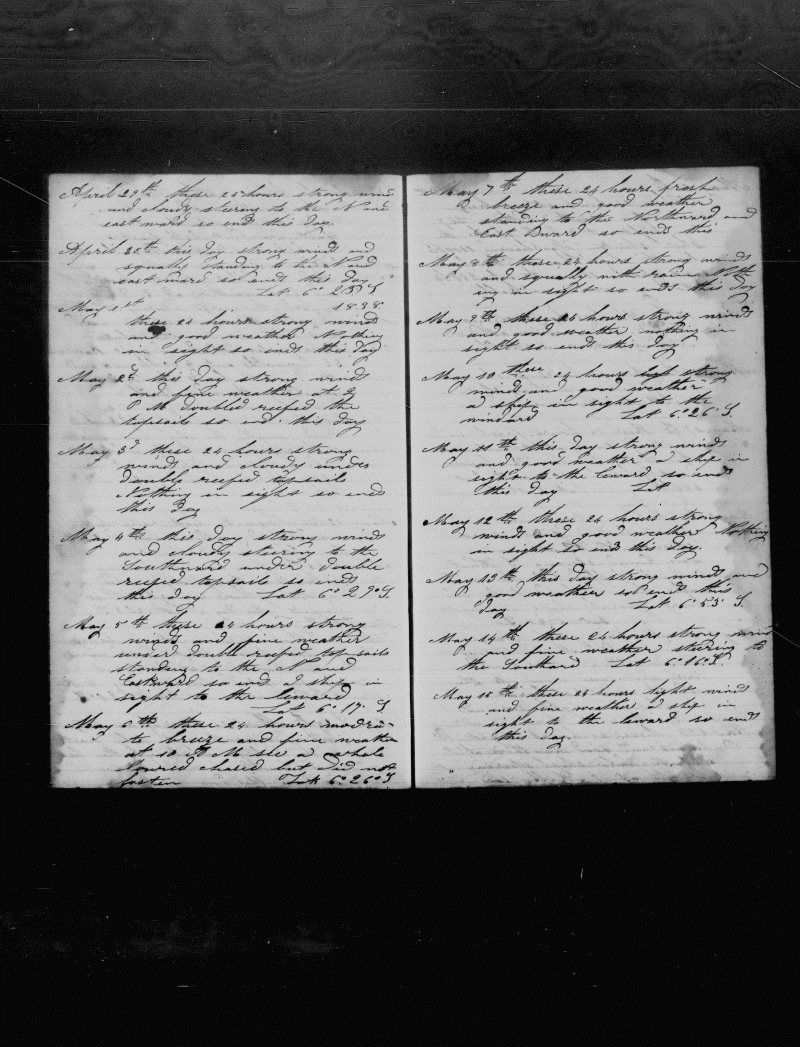 April 29th these 24 hours strong wind
and cloudy steering to the N and
east ward so end this day.
April 30th this day strong winds and
squally standing to the N and
east ward so end this day
Lat 6° 25 S
May 1st 1838
these 24 hours strong winds
and good weather Nothing
in sight so ends this day
May 2d this day strong winds
and fine weather at
P M doubled reefed the
topsails so end this day
May 3d these 24 hours strong
winds and cloudy under
double reefed topsails
Nothing in sight so ends
this Day
May 4th this day strong winds
and cloudy steering to the
Southward under double
reefed topsails so ends
this day Lat 6° 29° S
May 5th these 24 hours strong
winds and fine weather
under double reefed top sails
standing to the N and
Eastward so end A ship in
sight to the leward
Lat 6° 17 S
May 6th these 24 hours modre-
te breeze and fine weather
at 10 A M see a whale
lowred chased but did not
fasten Lat 6° 26° S.
May 7th these 24 hours fresh
breeze and good weather
standing to the Northward and
East ward so ends this
May 8th these 24 hours strong winds
and squally with rain Noth
ing in sight so ends this Day
May 9th these 24 hours strong winds
and good weather nothing in
sight so end this day
May 10 these 24 hours strong
wind and good weather
a ship in sight to the
windard Lat 6° 26' S.
May 11th this day strong winds
and good weather a ship in
sight to the leward so end
this Day Lat
May 12th these 24 hours strong
winds and good weather Nothing
in sight so ends this day.
May 13th this day strong winds and
good weather so ends this
day Lat 6° 53' S
May 14th these 24 hours strong wind
and fine weather steering to
the Southard Lat 6° 16° S.
May 15th these 24 hours light winds
and fine weather a ship in
sight to the leward so ends
this day.